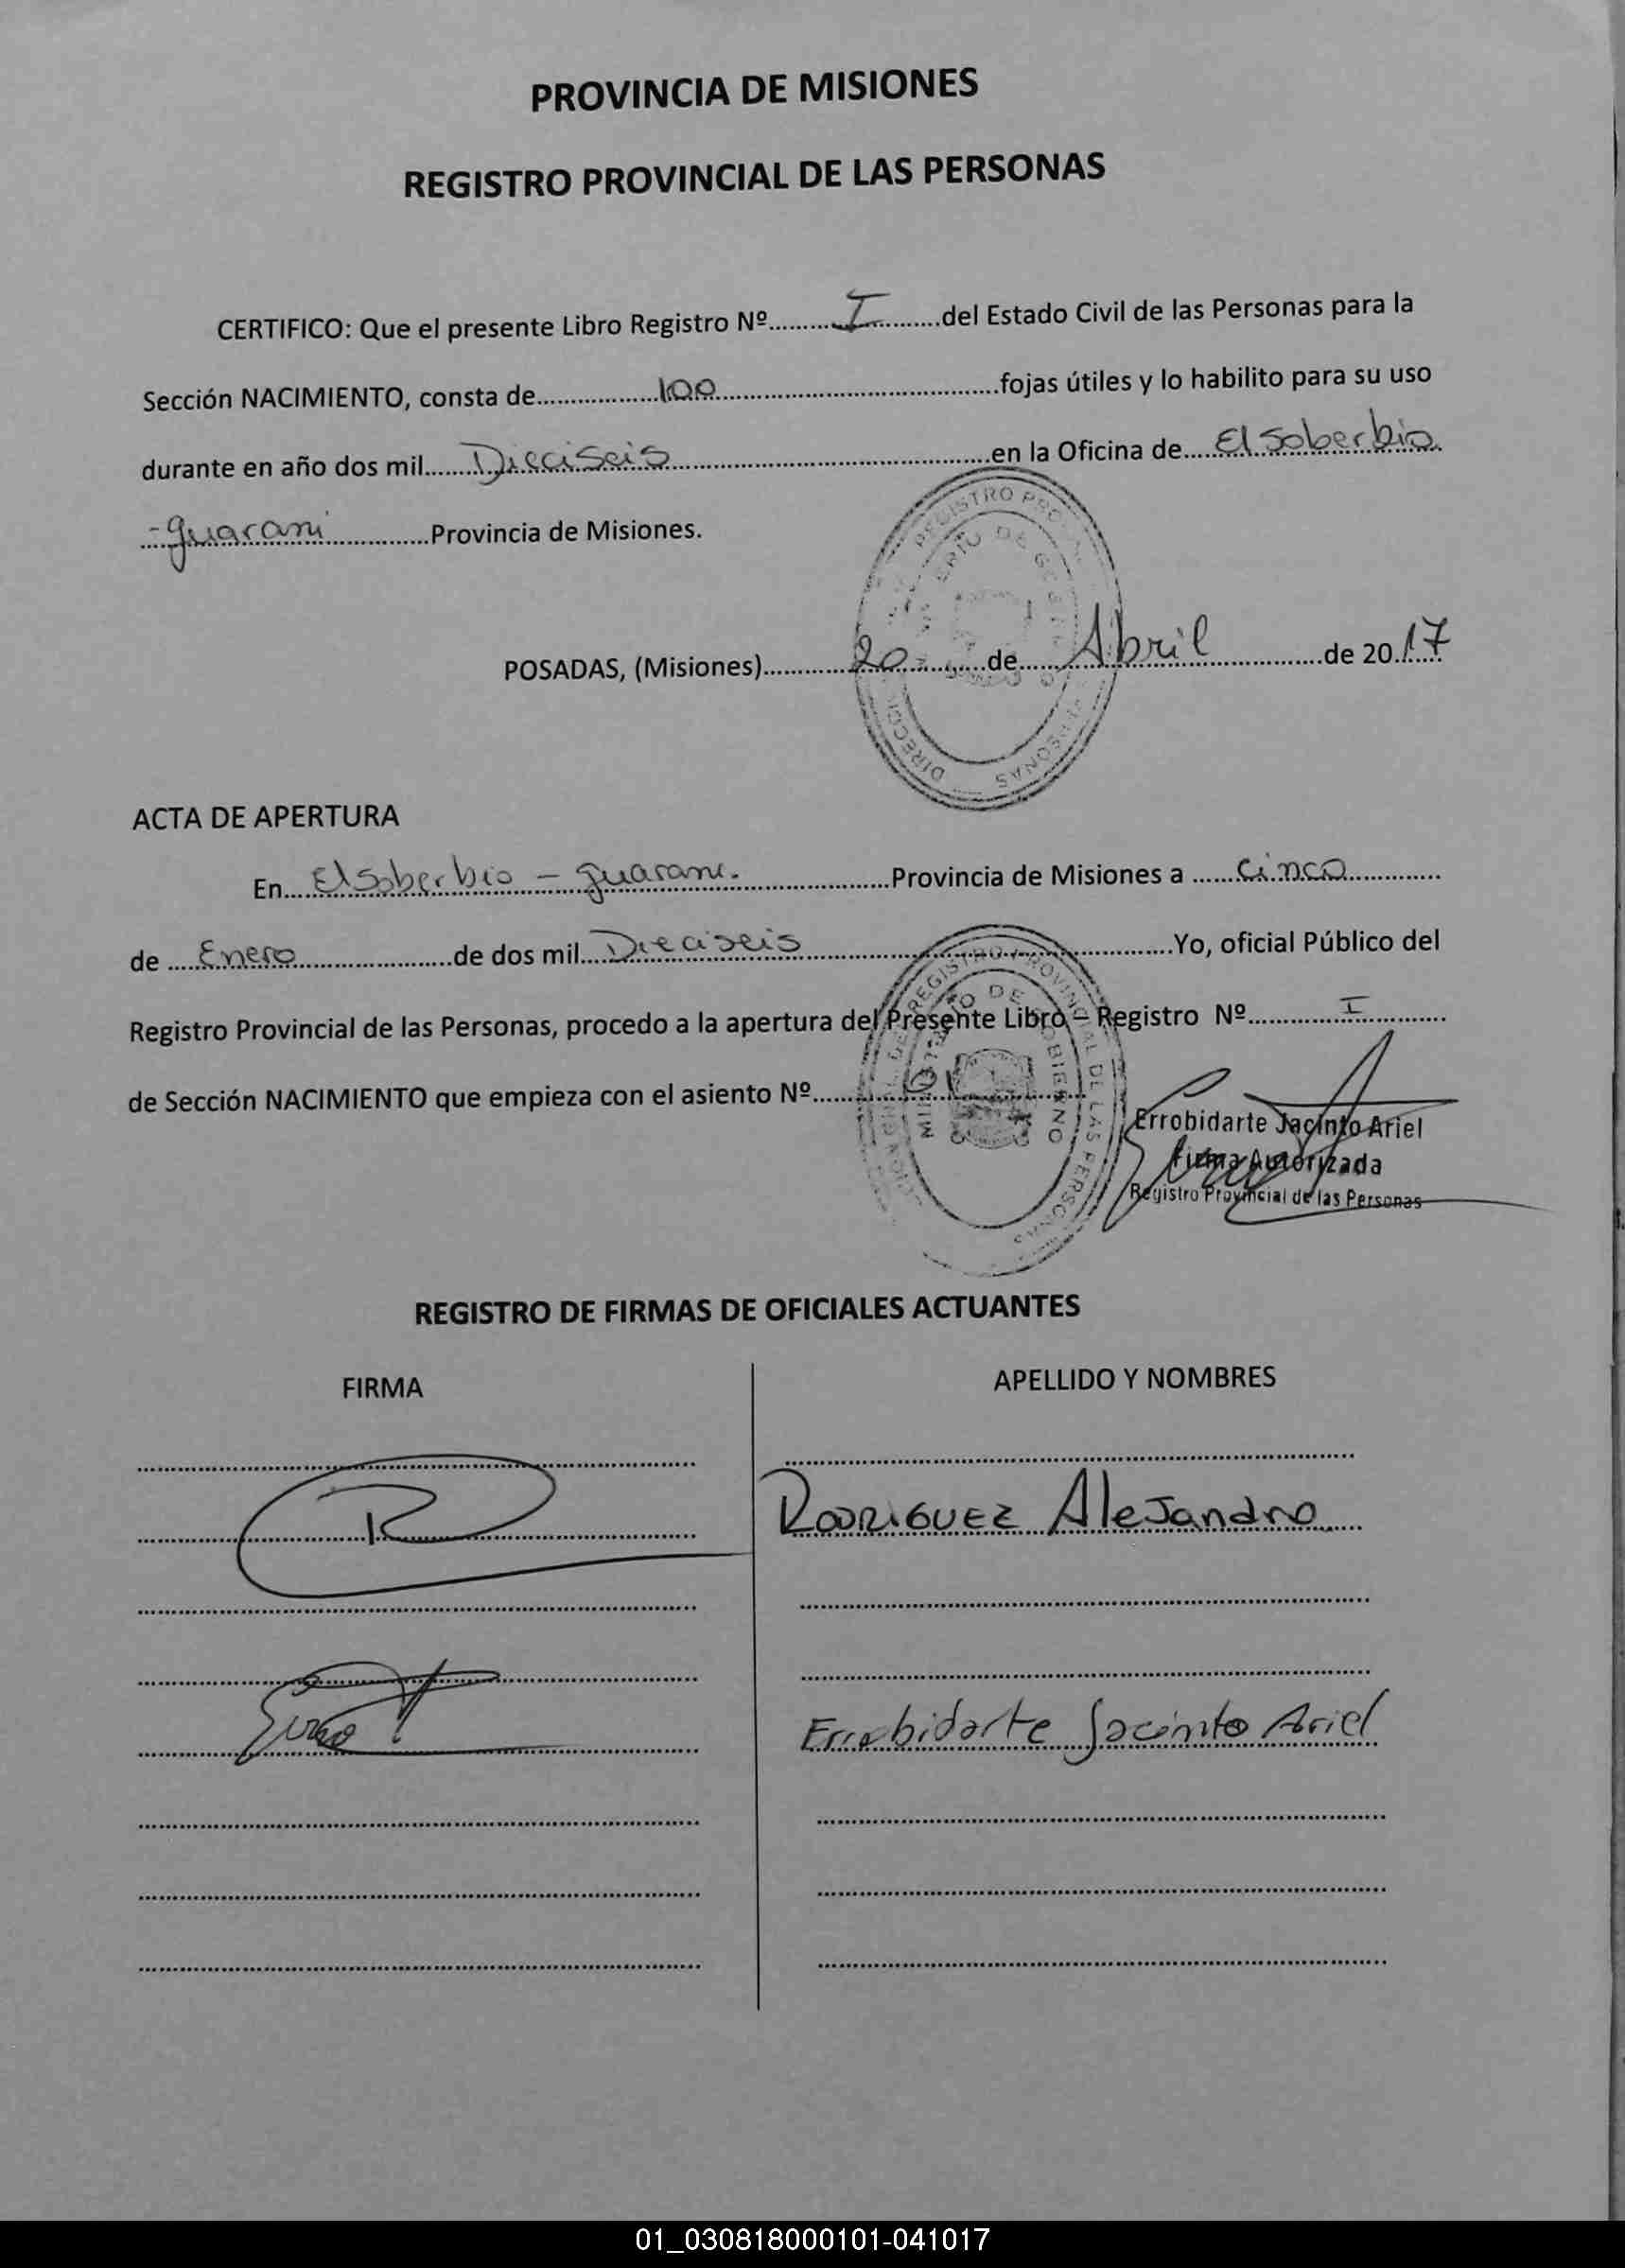 PROVINCIA DE MISIONES
REGISTRO PROVINCIAL DE LAS PERSONAS
CERTIFICO: Que el presente Libro Registro Nº..........I..........del Estado Civil de las Personas para la
Sección NACIMIENTO, consta de..........100..........fojas útiles y lo habilito para su uso
durante en año dos mil..........Dieciseis..........en la Oficina de..........El Soberbio.
-Guarani..........Provincia de Misiones.
POSADAS, (Misiones)..........20..........de..........Abril..........de 2017
ACTA DE APERTURA
En..........El Soberbio - Guarani...........Provincia de Misiones a ..........Cinco..........
de ..........Enero..........de dos mil..........Dieciseis..........Yo, oficial Público del
Registro Provincial de las Personas, procedo a la apertura del Presente Libro – Registro Nº..........I..........
de Sección NACIMIENTO que empieza con el asiento Nº..........01..........
Errobidarte Jacinto Ariel
Firma Autorizada
Registro Provincial de las Personas
REGISTRO DE FIRMAS DE OFICIALES ACTUANTES
FIRMA APELLIDO Y NOMBRES
RODRIGUEZ Alejandro
Errobidarte Jacinto Ariel
01_030818000101-041017